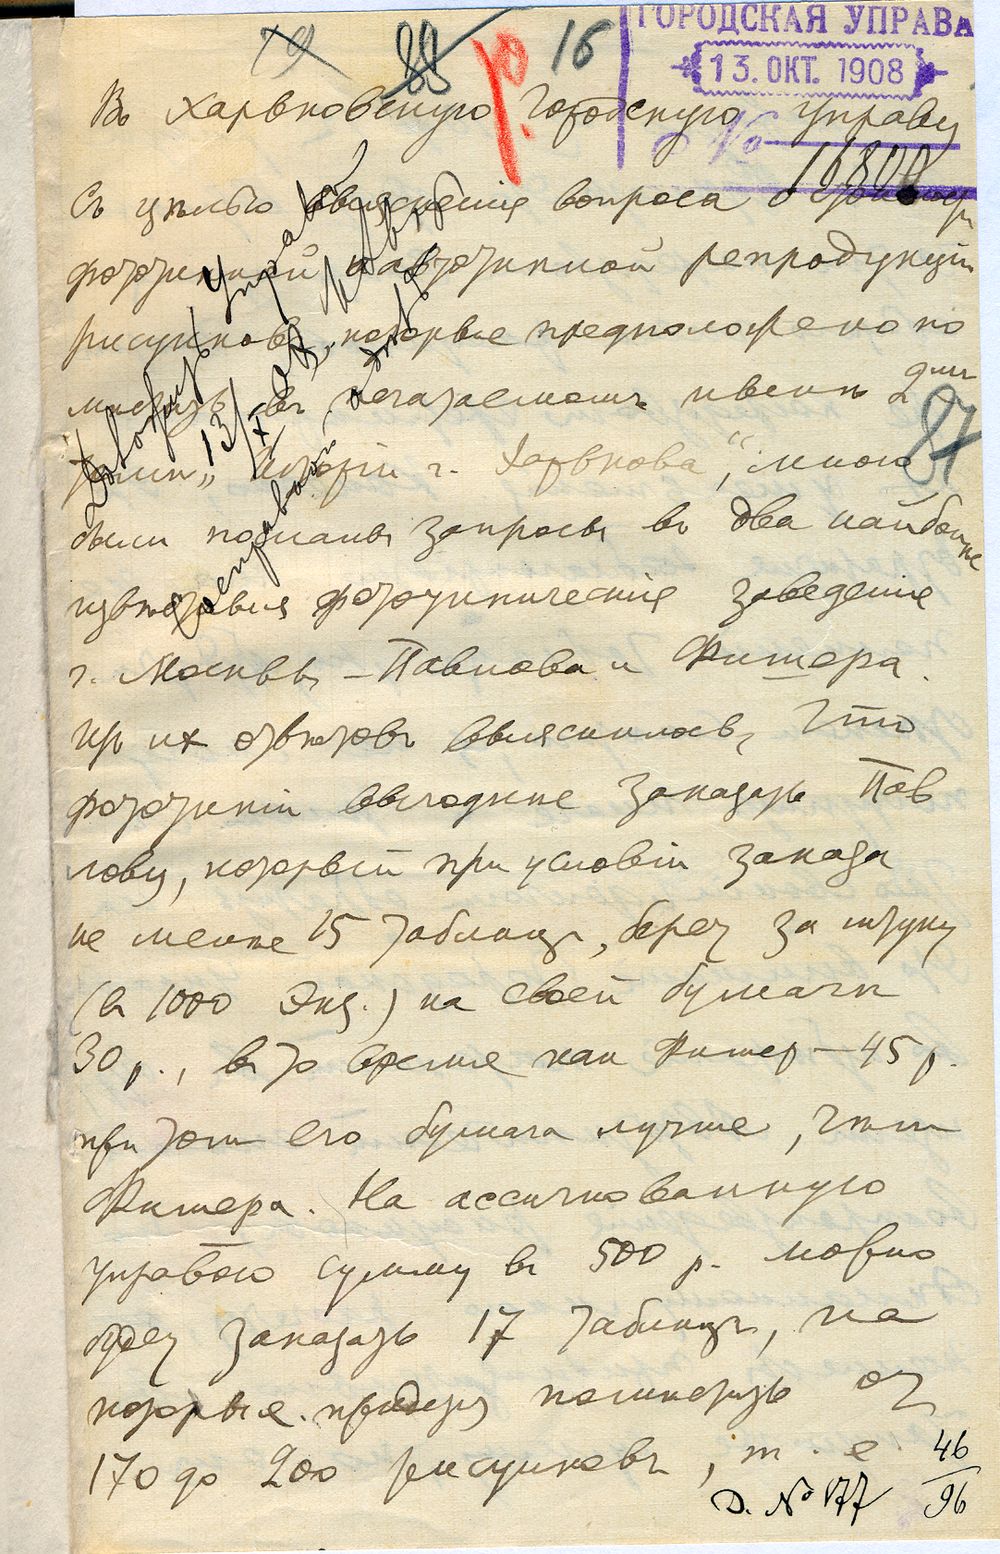 79 88 р. 16
ГОРОДСКАЯ УПРАВА
13. ОКТ. 1908
№ 16800
Въ Харьковскую Городскую Управу
Съ цѣлью выясненія вопроса о
фототипной и автотипной репродукціи
рисунковъ, которые предположено по
мѣстить въ печатаемомъ нѣсколь
"Исторіи г. Харькова", мною
87
были посланы запросы въ два наиболѣе
извѣстныя фототипическія заведенія
г. Москвы – Павлова и Фишера.
Изъ их отвѣтовъ выяснилось, что
фототипіи выгоднѣе заказать Пав
лову, который при условіи заказа
не менѣе 15 таблицъ, берет за штуку
(в 1000 экз.) на своей бумагѣ
30 р., въ то время как Фишер – 45 р.
при том его бумага лучше, чѣм
Фишера. На ассигнованную
управою сумму въ 500 р. можно
будет заказать 17 таблицъ, на
которые придется помѣстить от
170 до 200 рисунковъ, т. е
Д. № 177
46
96